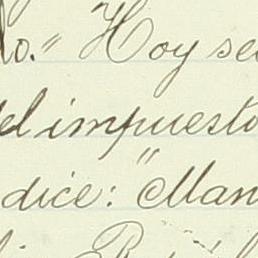 lo." Hoy se
del impuesto
dice: "Man